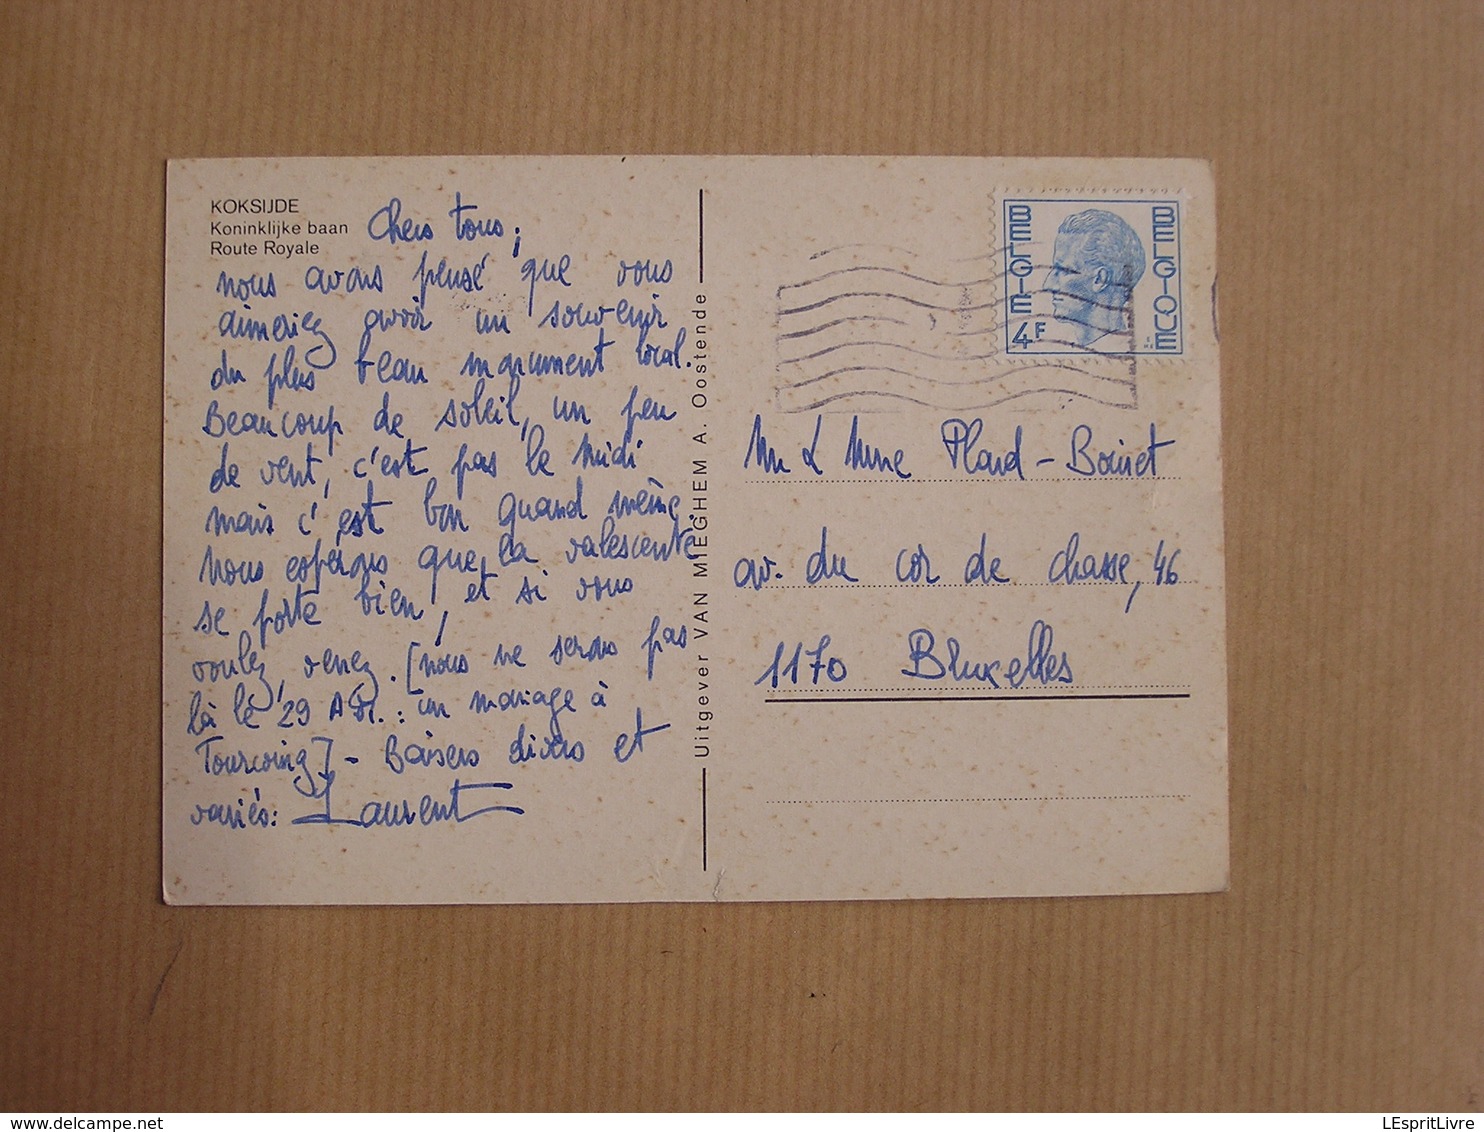 KOKSIJDE
Koninklijke baan
Route Royale
Chers tous ;
nous avons pensé que vous
aimeriez avoir un souvenir
du plus beau monument local.
Beaucoup de soleil, un peu
de vent, c'est pas le Midi
mais c'est bon quand même.
Nous espérons que la valescente
se porte bien, et si vous
voulez, venez. [nous ne serons pas
là le 29 : un mariage à
Tourcoing] - Baisers divers et
variés : Laurent
Uitgever VAN MIEGHEM A. Oostende
BELGIE
4F
BELGIQUE
Mme
av. du cor de chasse, 46
1170 Bruxelles
delcampe.net
LEspritLivre